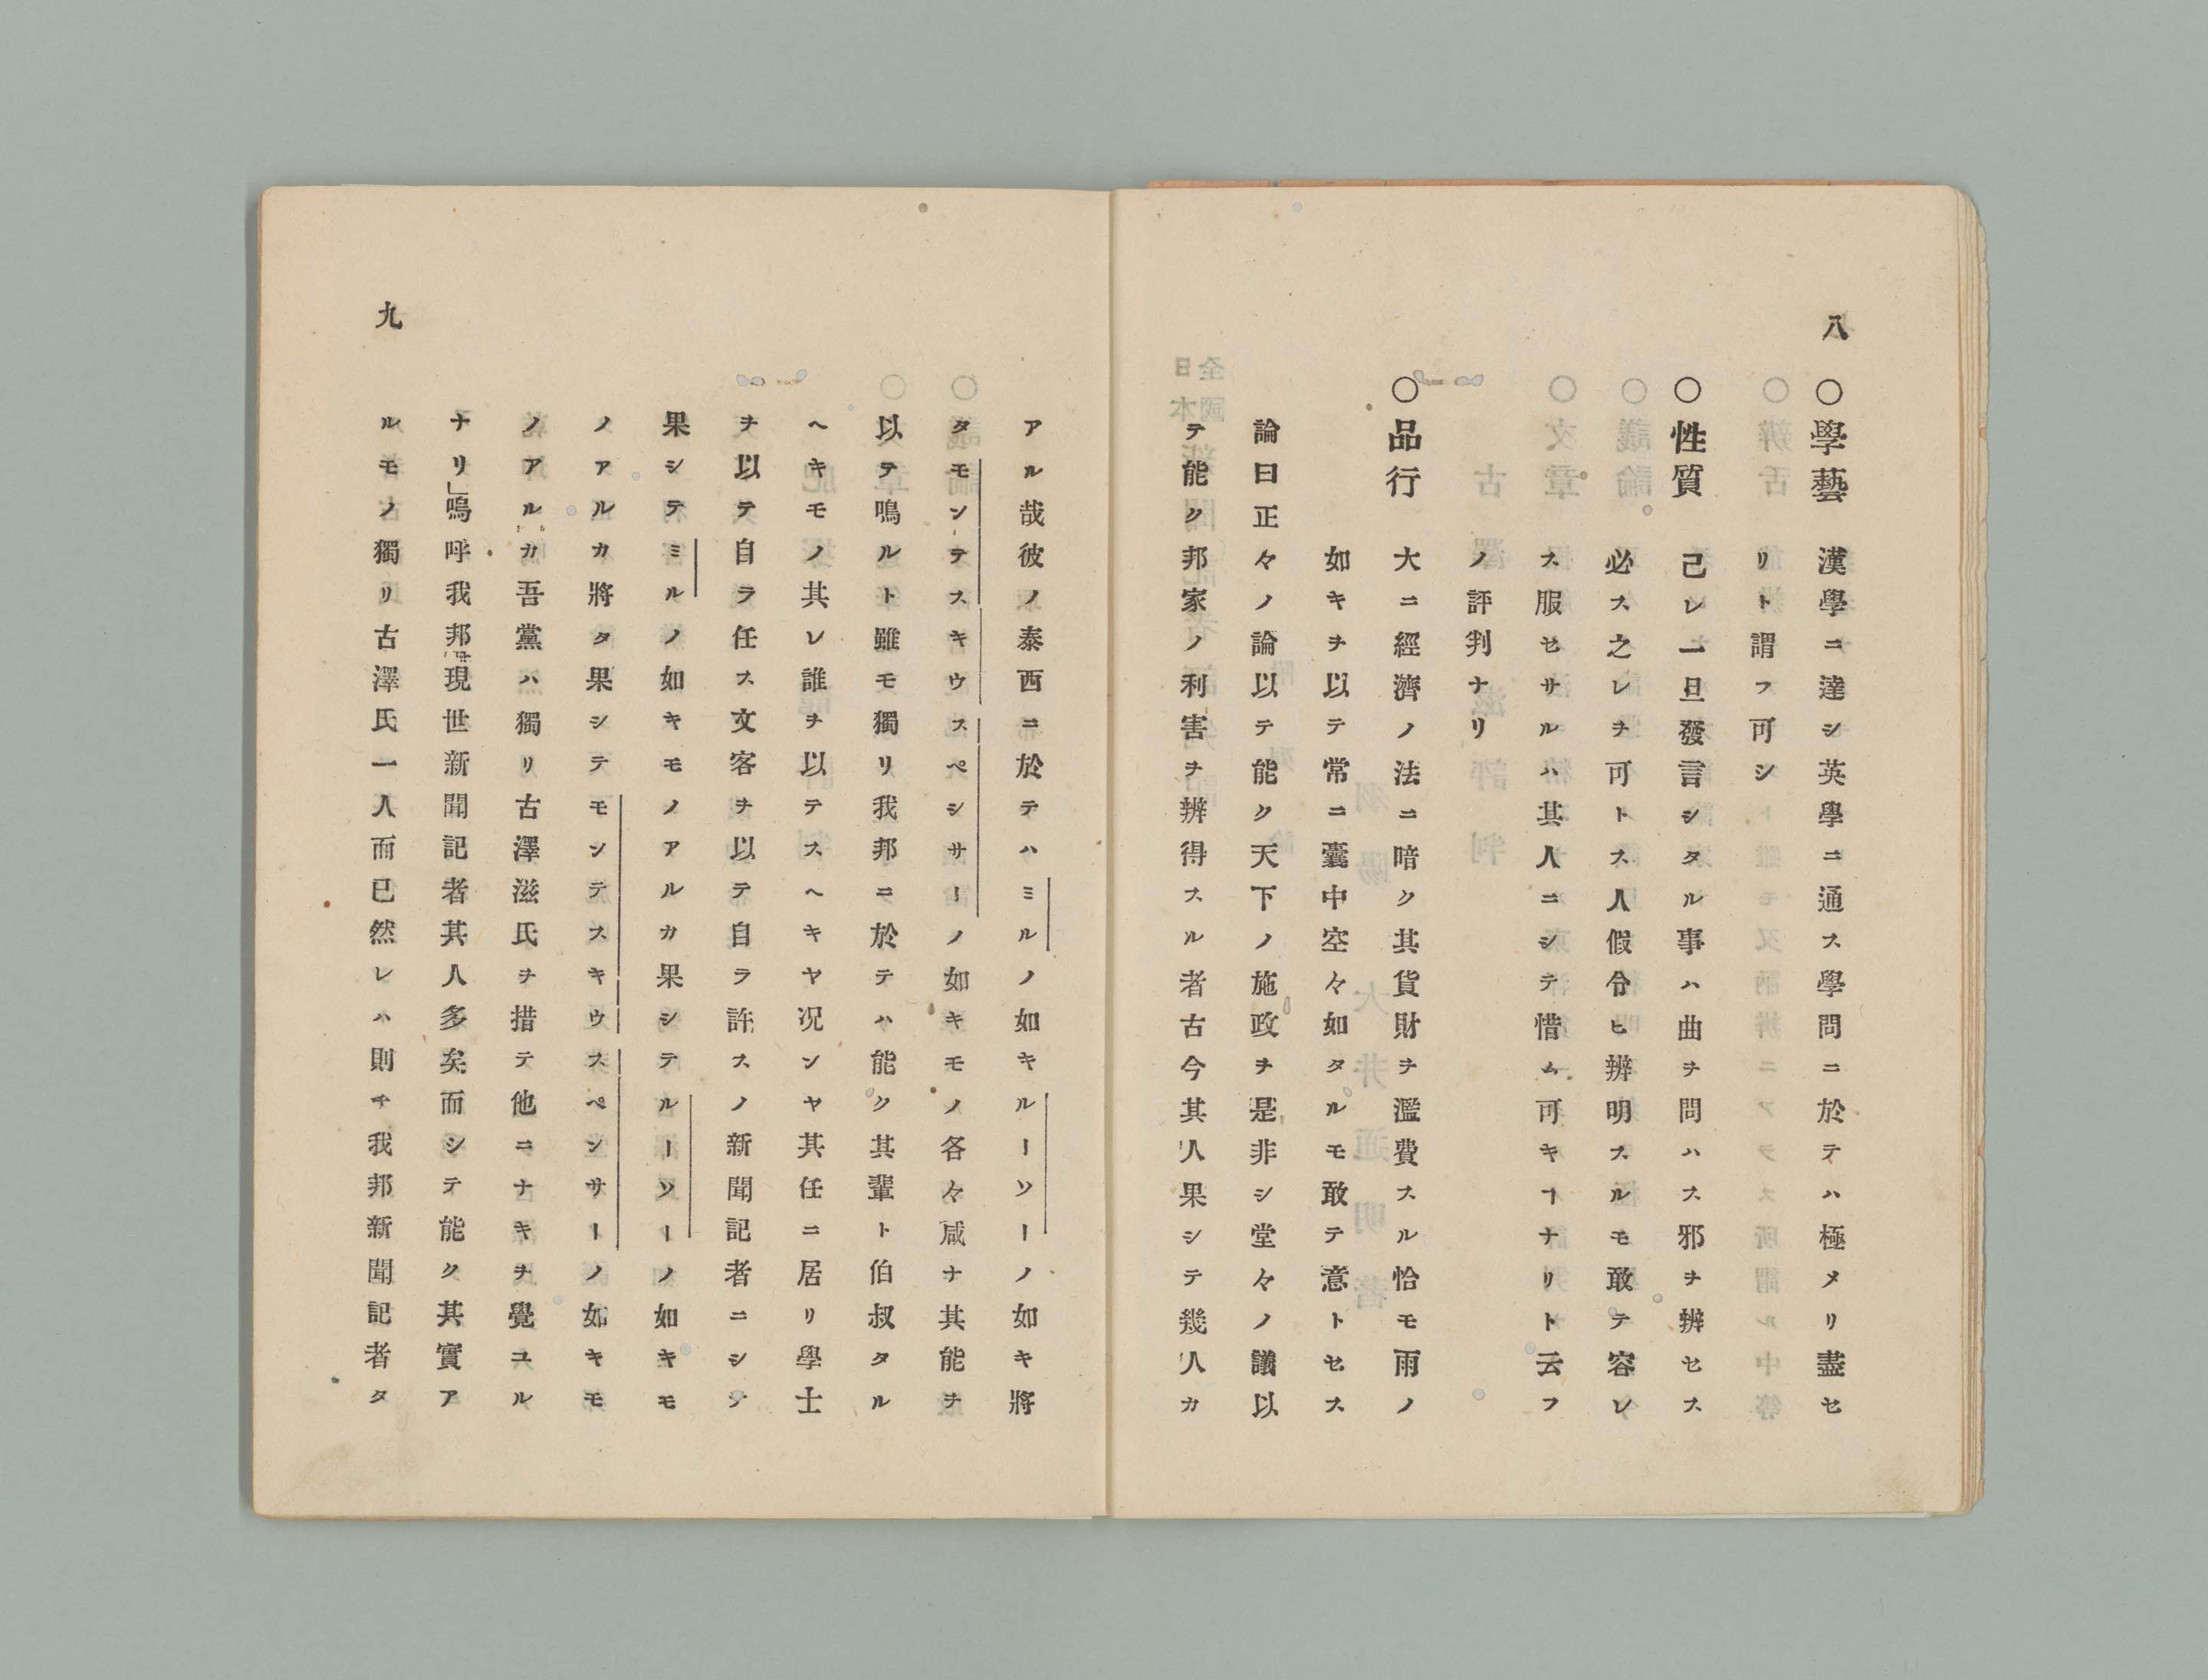 八
○學藝 漢學ニ達シ英學ニ通ス學問ニ於テハ極メリ盡セ
リト謂フ可シ
○性質 己レ一旦發言シタル事ハ曲ヲ問ハス邪ヲ辨セス
必ス之レヲ可トス人假令ヒ辨明スルモ敢テ容レ
ス服セサルハ其人ニシテ惜ム可キヿナリト云フ
ノ評判ナリ
○品行 大ニ經濟ノ法ニ暗ク其貨財ヲ濫費スル恰モ雨ノ
如キヲ以テ常ニ囊中空々如タルモ敢テ意トセス
論曰正々ノ論以テ能ク天下ノ施政ヲ是非シ堂々ノ議以
テ能ク邦家ノ利害ヲ辨得スル者古今其人果シテ幾人カ
アル哉彼ノ泰西ニ於テハミルノ如キルーソーノ如キ將
タモンテスキウスペシサーノ如キモノ各々咸ナ其能ヲ
以テ鳴ルト雖モ獨リ我邦ニ於テハ能ク其輩ト伯叔タル
ヘキモノ其レ誰ヲ以テスヘキヤ况ンヤ其任ニ居リ學士
ヲ以テ自ラ任ス文客ヲ以テ自ラ許スノ新聞記者ニシテ
果シテミルノ如キモノアルカ果シテルーソーノ如キモ
ノアルカ將タ果シテモンテスキウスペンサーノ如キモ
ノアルカ吾黨ハ獨リ古澤滋氏ヲ措テ他ニナキヲ覺ユル
ナリ」嗚呼我邦現世新聞記者其人多矣而シテ能ク其實ア
ルモノ獨リ古澤氏一人而已然レハ則チ我邦新聞記者タ
九